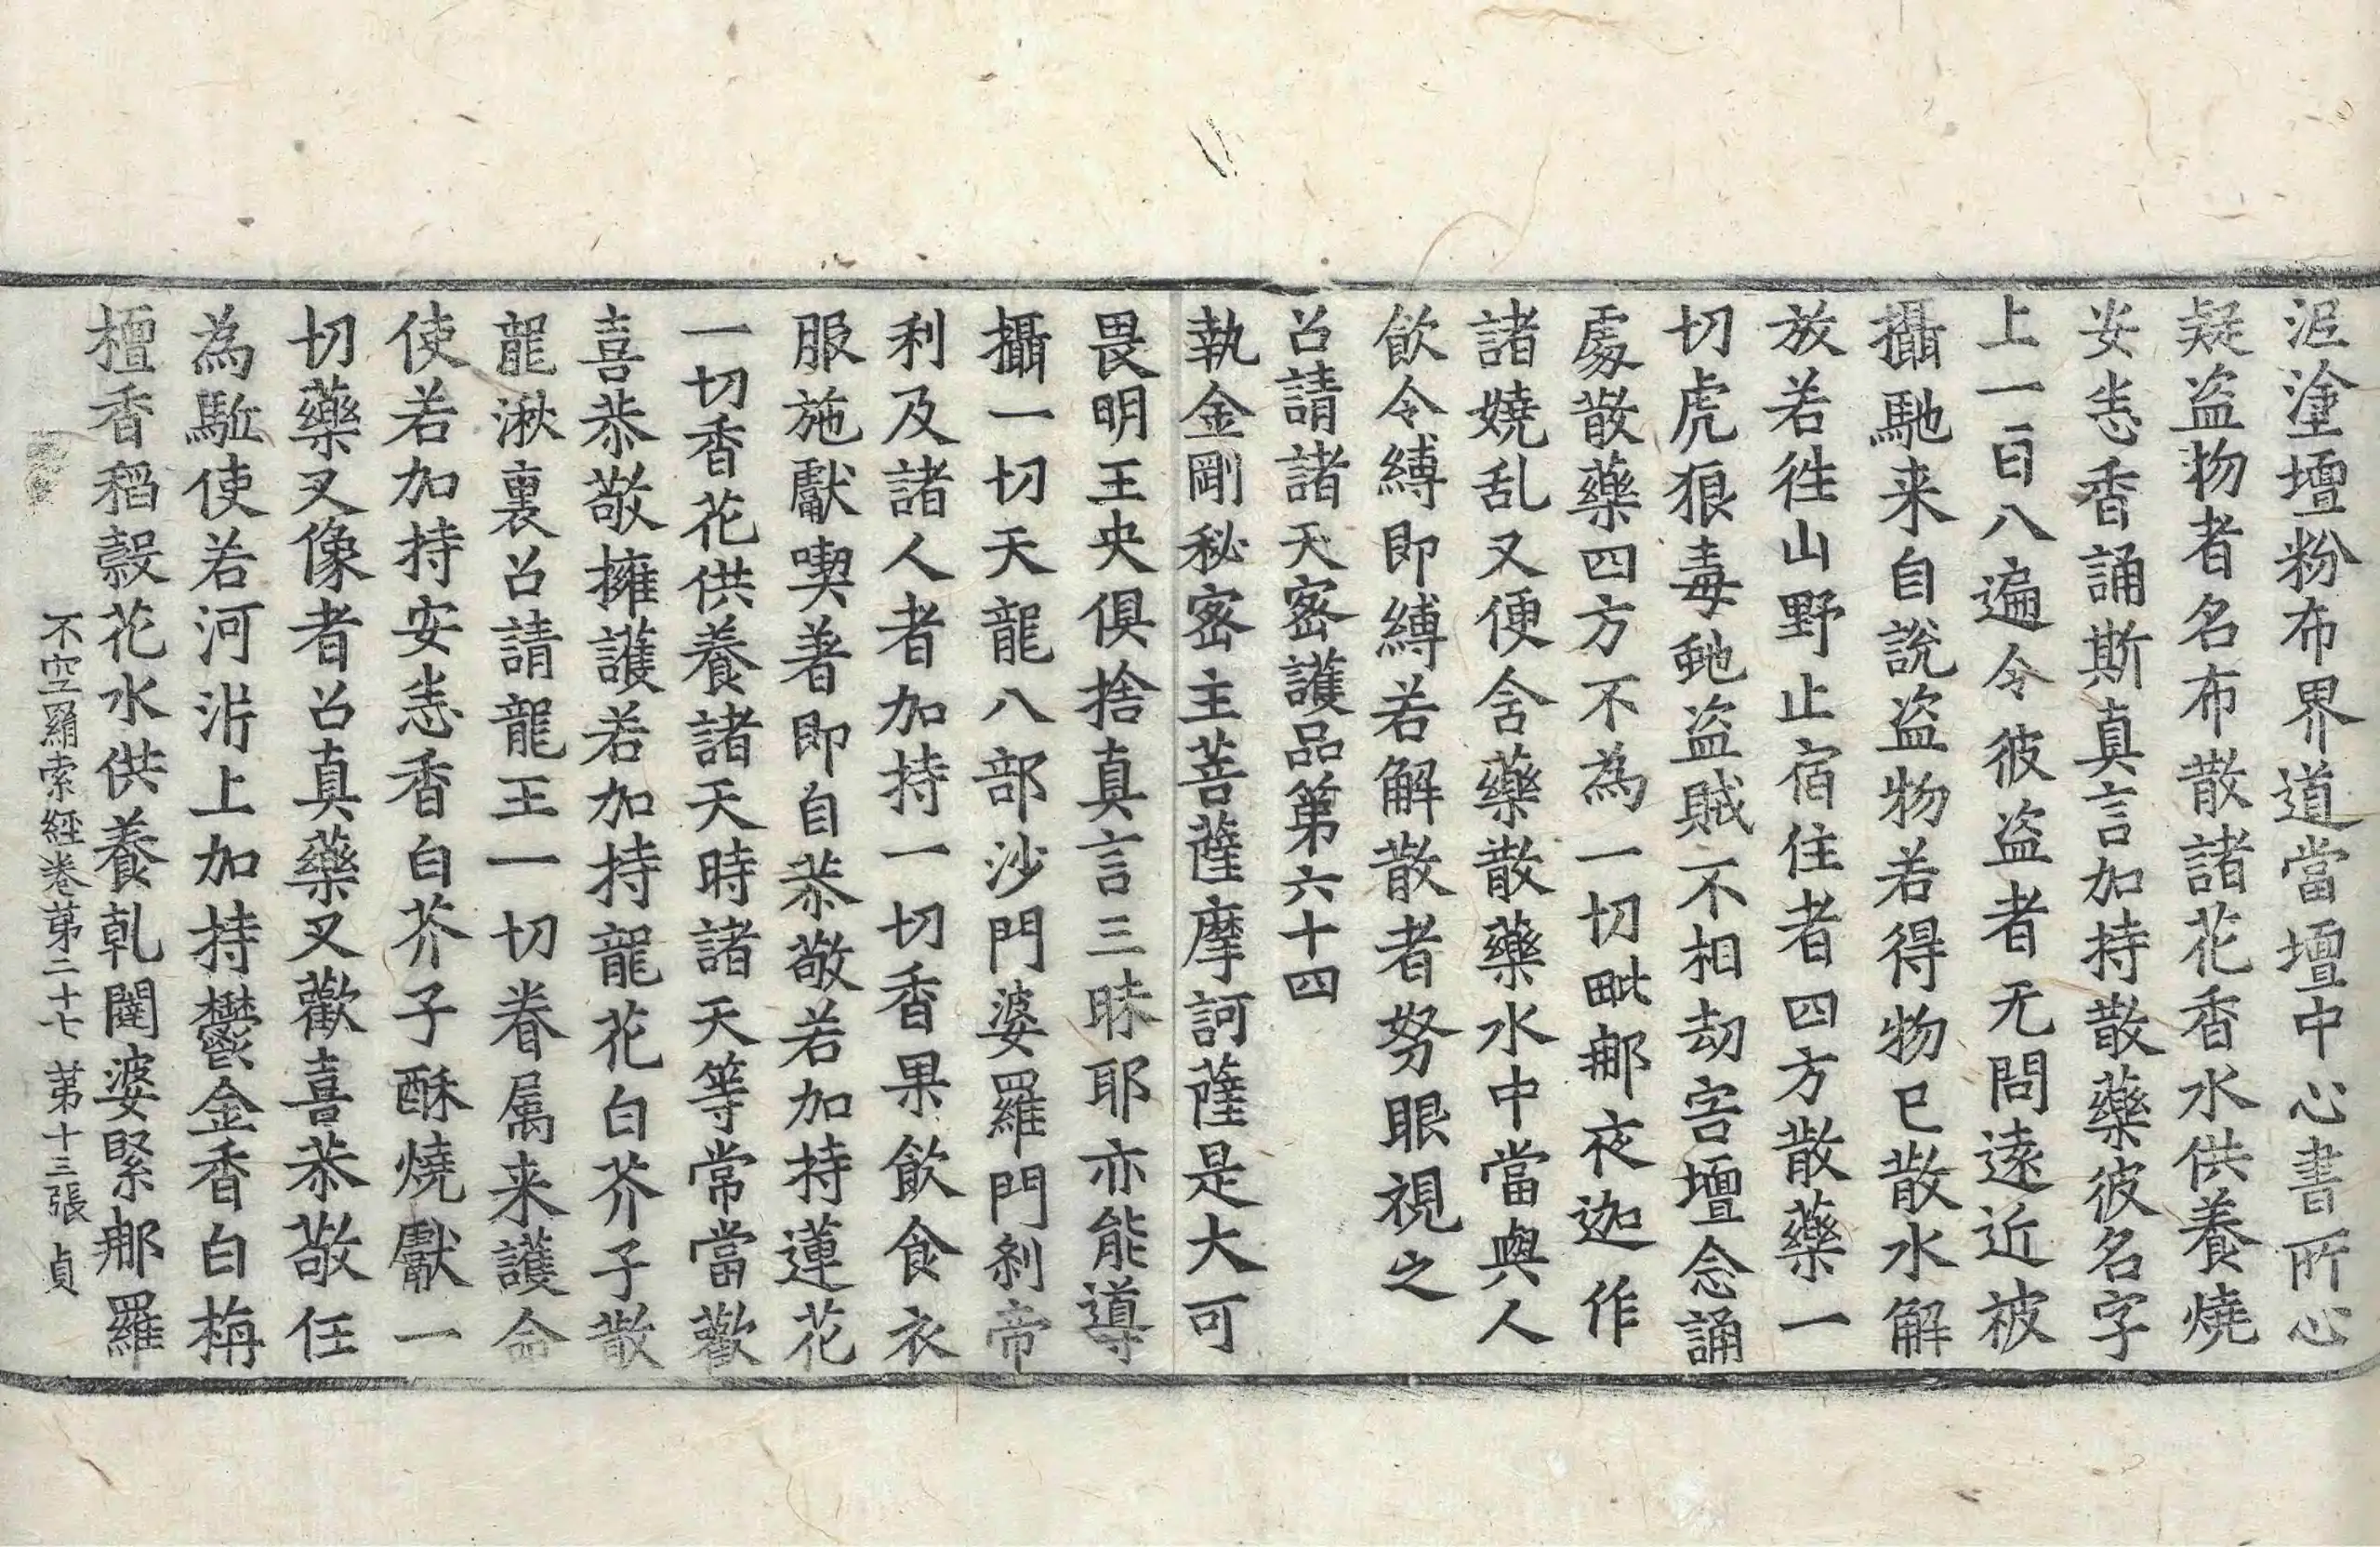 泥塗壇粉布界道當壇中心書所心
疑盜物者名布散諸花香水供養燒
安悉香誦斯真言加持散藥彼名字
上一百八遍令彼盜者无問遠近被
攝馳来自說盜物若得物已散水解
放若往山野止宿住者四方散藥一
切虎狼毒虵盜賊不相劫害壇念誦
處散藥四方不為一切毗那夜迦作
諸嬈乱又便含藥散藥水中當與人
飲令縛即縛若解散者努眼視之
召請諸天密護品第六十四
執金剛秘密主菩薩摩訶薩是大可
畏明王央俱捨真言三昧耶亦能導
攝一切天龍八部沙門婆羅門刹帝
利及諸人者加持一切香果飲食衣
服施獻喫著即自恭敬若加持蓮花
一切香花供養諸天時諸天等常當歡
喜恭敬擁護若加持龍花白芥子散
龍湫裏召請龍王一切眷属来護命
使若加持安悉香白芥子酥燒獻一
切藥叉像者召真藥叉歡喜恭敬任
為駈使若河泲上加持鬱金香白栴
檀香稻穀花水供養乹闥婆緊那羅
不空羂索經卷第二十七 第十三張 貞